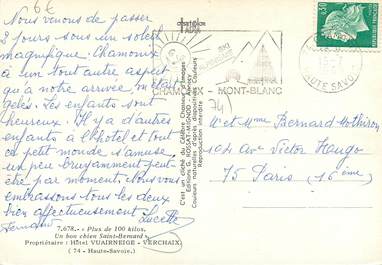 6€
Nous venons de passer
2 jours sous un soleil
magnifique. Chamonix
a un tout autre aspect
qu'a notre arrivée on était
gelés. Les enfants sont
heureux. Il y a d'autres
enfants à l'hôtel et tout
ce petit monde s'amuse
un peu bruyamment peut-
être par moments. Nous vous
embrassons tous les deux
bien affectueusement
Lucette
Fernand
7.678. - « Plus de 100 kilos.
Un bon chien Saint-Bernard »
Propriétaire : Hôtel VUAIRNEIGE - VERCHAIX
(74 - Haute-Savoie.)
C'est un cliché du Célèbre Chasseur d'Images
Éditions ROSSAT-MIGNOD - Annecy
Couleurs naturelles d'après diapositives Couleurs
Reproduction interdite
SKI
CHAMONIX - MONT-BLANC
HAUTE SAVOIE
0,30
REPUBLIQUE FRANÇAISE
74
M et Mme Bernard Mothiron
104 Av Victor Hugo
75 Paris (16ème)